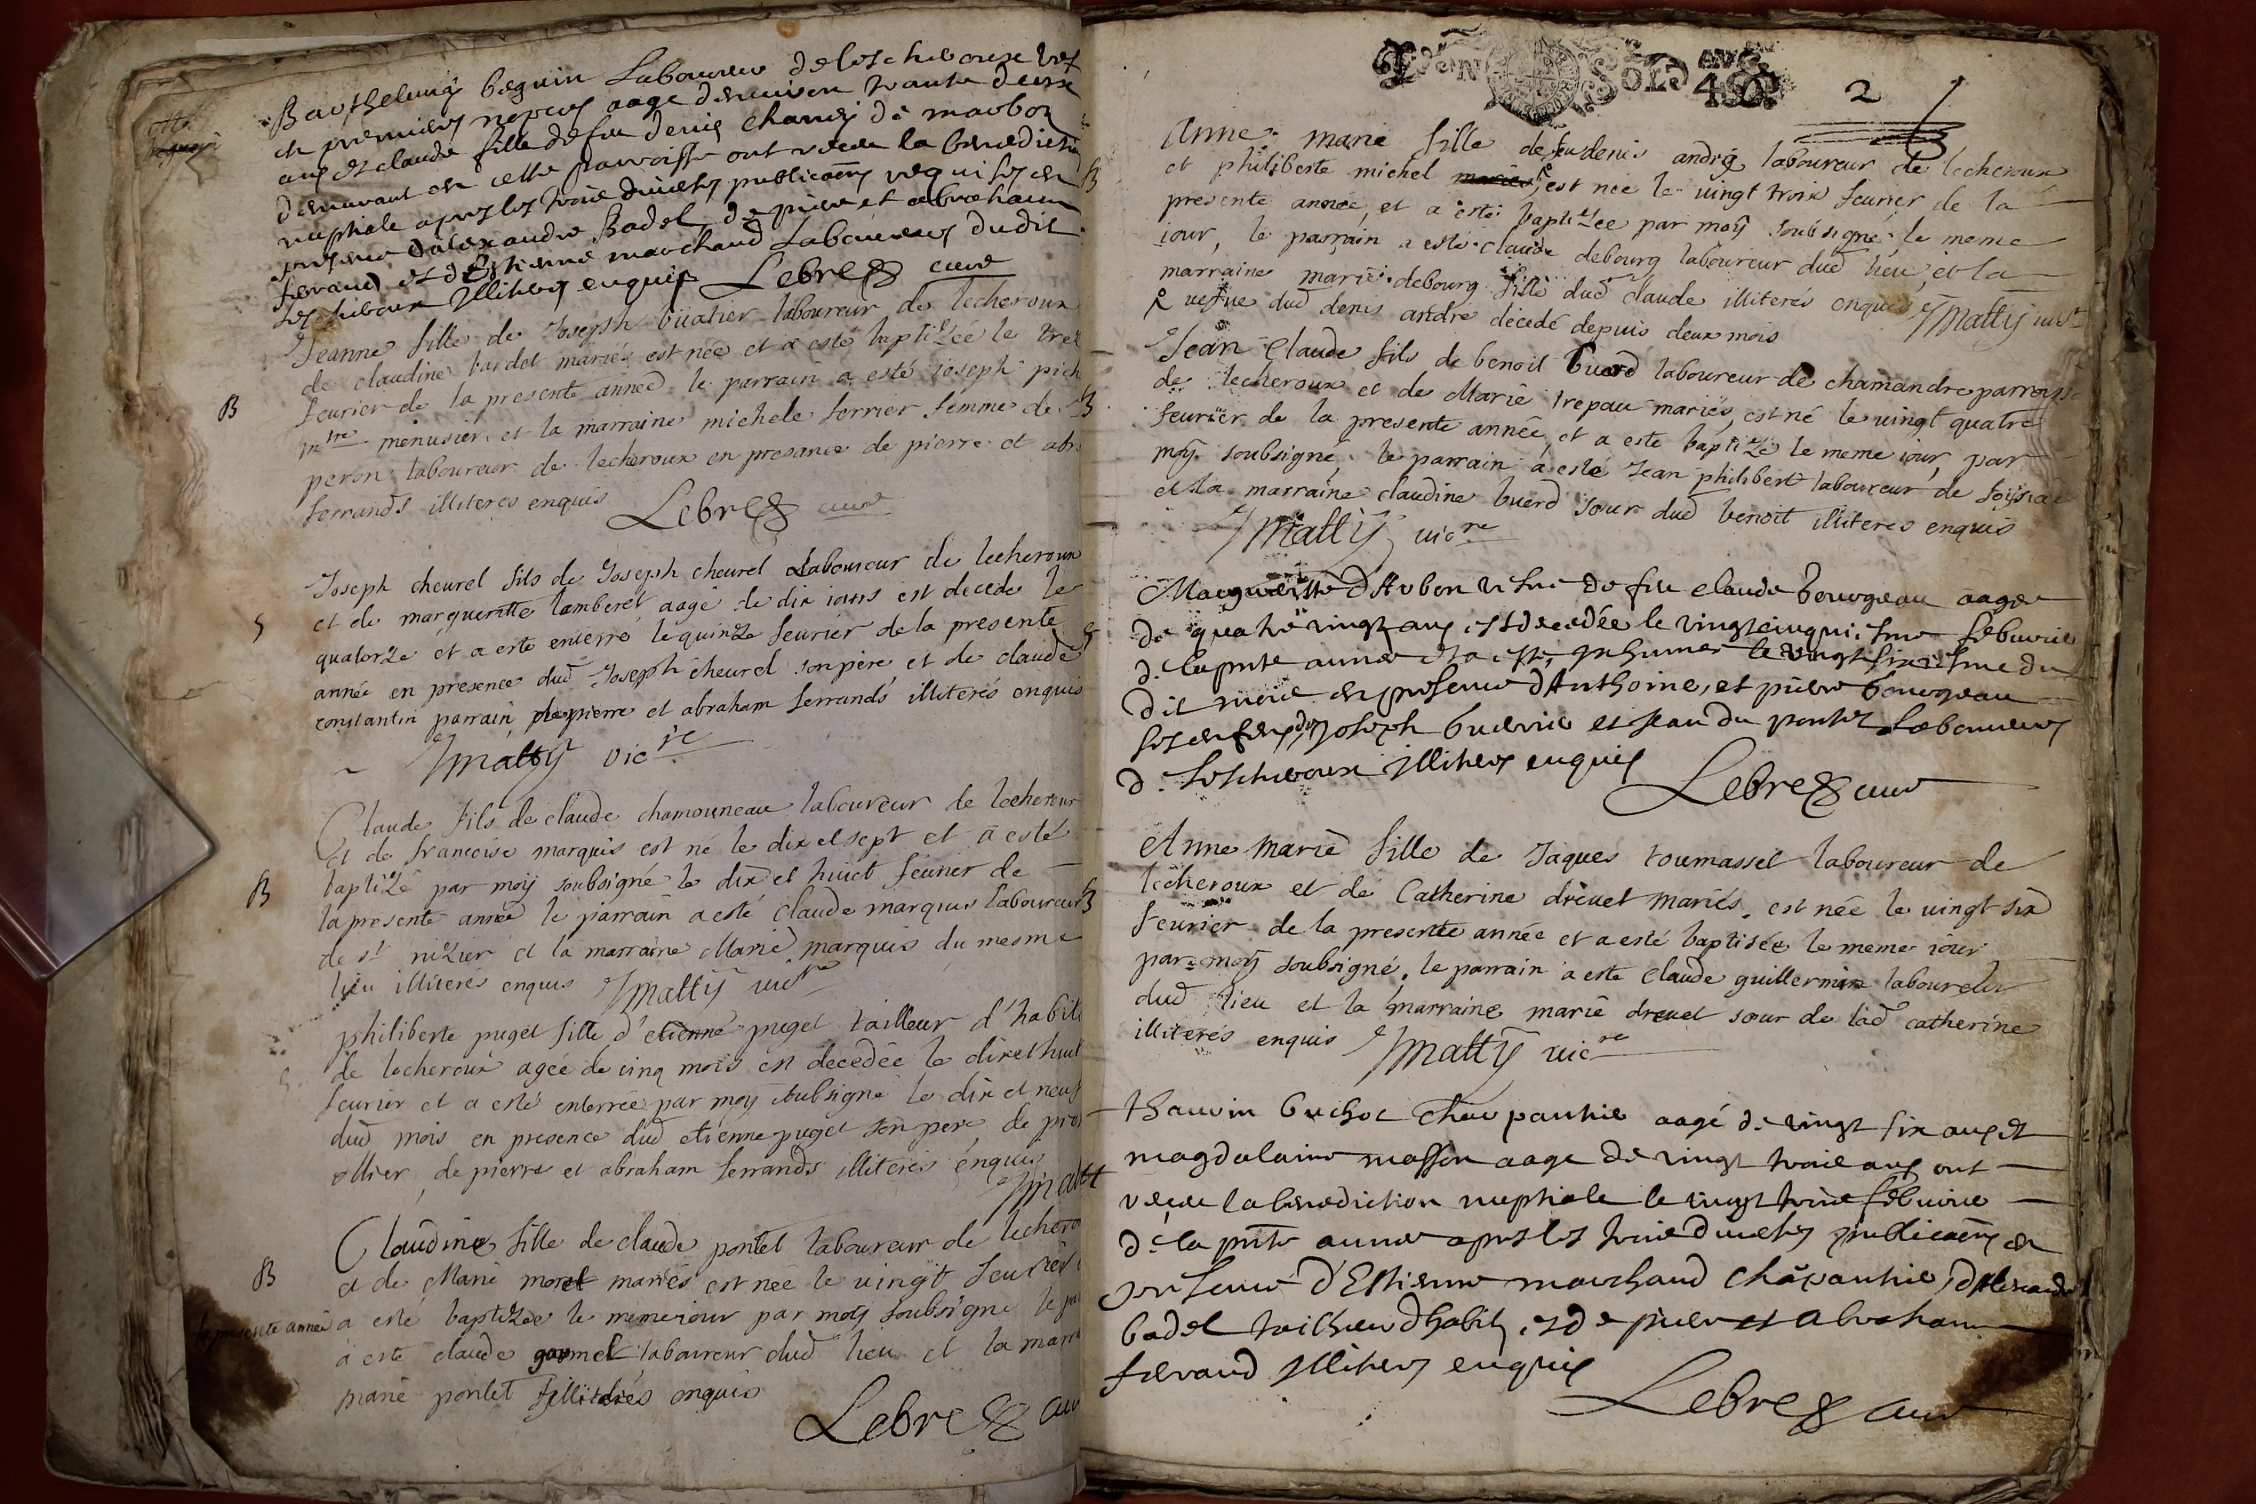 Barthelemy beguin Laboureur de Lescheroux
en premieres nopces aage denviron trante deux
ans et claude fille de feu denis de marboz
demeurant en cette parroisse ont receu la benediction
nuptiale apres les trois publicaons requises en
presence d'alexandre Badel de pierre et abraham
ferrand et d'Estienne marchand Laboureurs dudit
Lescheroux Illiteres enquis Lebre curé
Jeanne fille de Joseph buatier laboureur de lecheroux
de claudine bardet mariés est née et a esté baptizée le
B
feurier de la presente année le parrain a esté joseph
mtre menusier et la marraine michele ferrier femme de
peron laboureur de lecheroux en presance de pierre et
ferrands illiteres enquis Lebre curé
Joseph cheurel fils de Joseph cheurel Laboureur de lecheroux
et de margueritte lamberet aagé de dix iours est decedé le
S
quatorze et a esté enterré le quinze feurier de la presente
année en presence dud Joseph cheurel son père et de claude
constantin parrain de pierre et abraham ferrands illiterés enquis
Matty vicre
Claude fils de claude chamouneau laboureur de lecheroux
et de francoise marquis est né le dix et sept et a esté
B
baptizé par moy soubsigné le dix et huict feurier de
la presente année le parrain a esté claude marquis laboureur
de st nizier et la marraine Marie marquis du mesme
lieu illiterés enquis Matty vicre
philiberte puget fille d'etienne puget tailleur d'habits
de lecheroux agée de cinq mois est decedée le dix et huit
feurier et a esté enterrée par moy soubsigné le dix et neuf
dud mois en presence dud etienne puget son pere, de
ollier, de pierre et abraham ferrands illiterés enquis
Matt
Claudine fille de claude pontet laboureur de
B
et de Marie moret mariés est née le vingt feurier
la presente année
a esté baptizée le meme iour par moy soubsigné le
a esté claude laboureur dud lieu et la
marie pontet illiterés enquis
Lebre curé
SOL
2
Anne marie fille de feu denis andré laboureur de lecheroux
et philiberte michel est née le vingt trois feurier de la
presente année, et a esté baptizée par moy soubsigné le meme
iour, le parrain a esté claude debourg laboureur dud lieu, et la
marraine marie debourg fille dud claude illiterés enquis Matty vicre
vefve dud denis andré decedé depuis deux mois
Jean Claude fils de benoit buerd laboureur de chamandre parroisse
de lecheroux et de Marie trepau mariés, est né le vingt quatre
feurier de la presente année, et a esté baptizé le meme iour, par
moy soubsigné, le parrain a esté Jean philibert laboureur de foissiat
et la marraine claudine buerd sour dud benoit illiteres enquis
Matty vicre
Margueritte d'Aubon vefue de feu claude bourgeau aagée
de quatre vingt ans est decedée le vingt cinquiesme febvrier
de la pnte année et a esté Inhumée le vingt sixiesme du
dit mois en presence d'Anthoine, et pierre bourgeau
ses enfens, de Joseph buerrie et Jean du pontet Laboureurs
de Lescheroux Illiteres enquis Lebre curé
Anne Marie fille de Jaques toumassét laboureur de
lecheroux et de Catherine drevet mariés, est née le vingt six
feurier de la presente année et a esté baptisée le meme iour
par moy soubsigné, le parrain a esté claude guillermin laboureur
dud lieu et la marraine marie drevet sœur de lad catherine
illiterés enquis Matty vicre
thauvin buchot charpantier aagé de vingt six ans et
magdelaine masson aage de vingt trois ans ont
receu la benediction nuptiale le vingt trois febvrier
de la pnte année apres les trois publicaons en
presence d'Estienne marchand charpantier, d'Alexandre
badel tailleur dhabits, et de pierre et Abraham
ferrand Illiteres enquis
Lebre curé